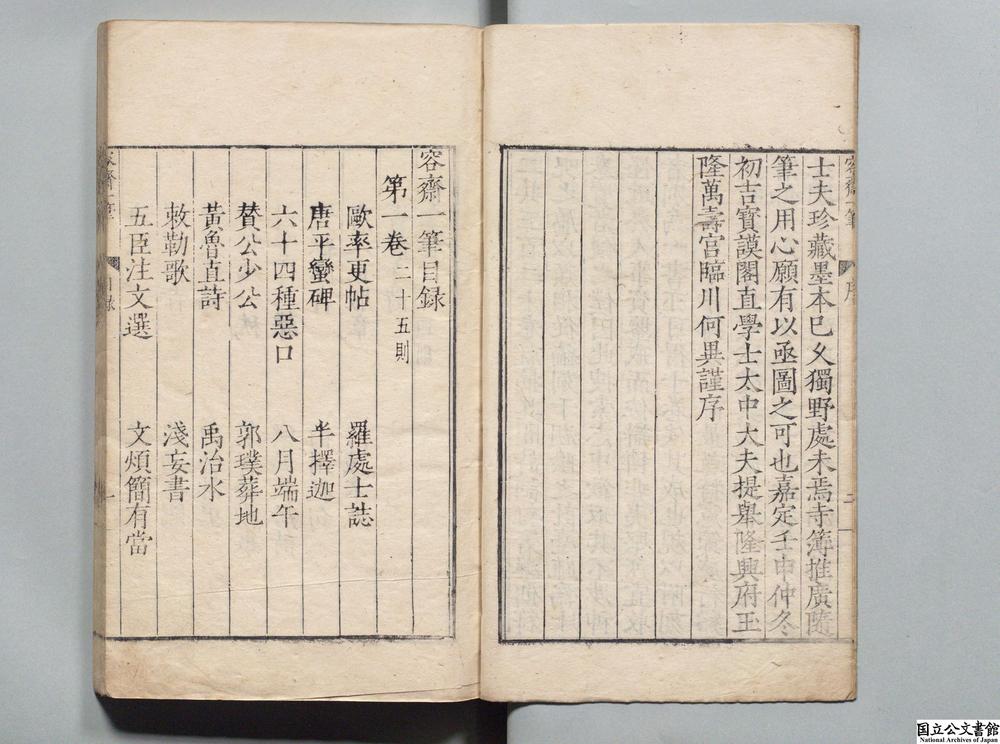 容齋一筆
序
二
士夫珍藏墨本已久獨野處未焉寺簿推廣隨
筆之用心願有以亟圖之可也嘉定壬申仲冬
初吉寳謨閣直學士太中大夫提舉隆興府玉
隆萬壽宮臨川何異謹序
容齋一筆目録
第一卷 二十五則
歐率更帖 羅處士誌
唐平蠻碑 半擇迦
六十四種惡口 八月端午
賛公少公 郭璞葬地
黃魯直詩 禹治水
敕勒歌 淺妄書
五臣注文選 文煩簡有當
容齋一筆
目録
一
国立公文書館
National Archives of Japan